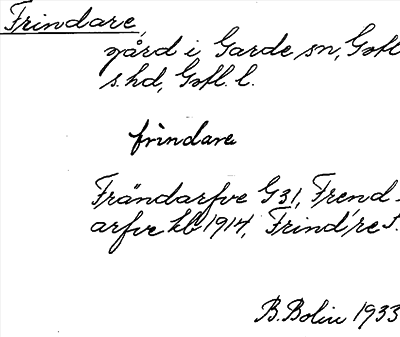 Frindare,
gård i Garde sn, Gotl.
s. hd, Gotl. l.
frindare
Frändarfve G31, Frend-
arfve kb 1914, Frind're
B. Bolin 1933